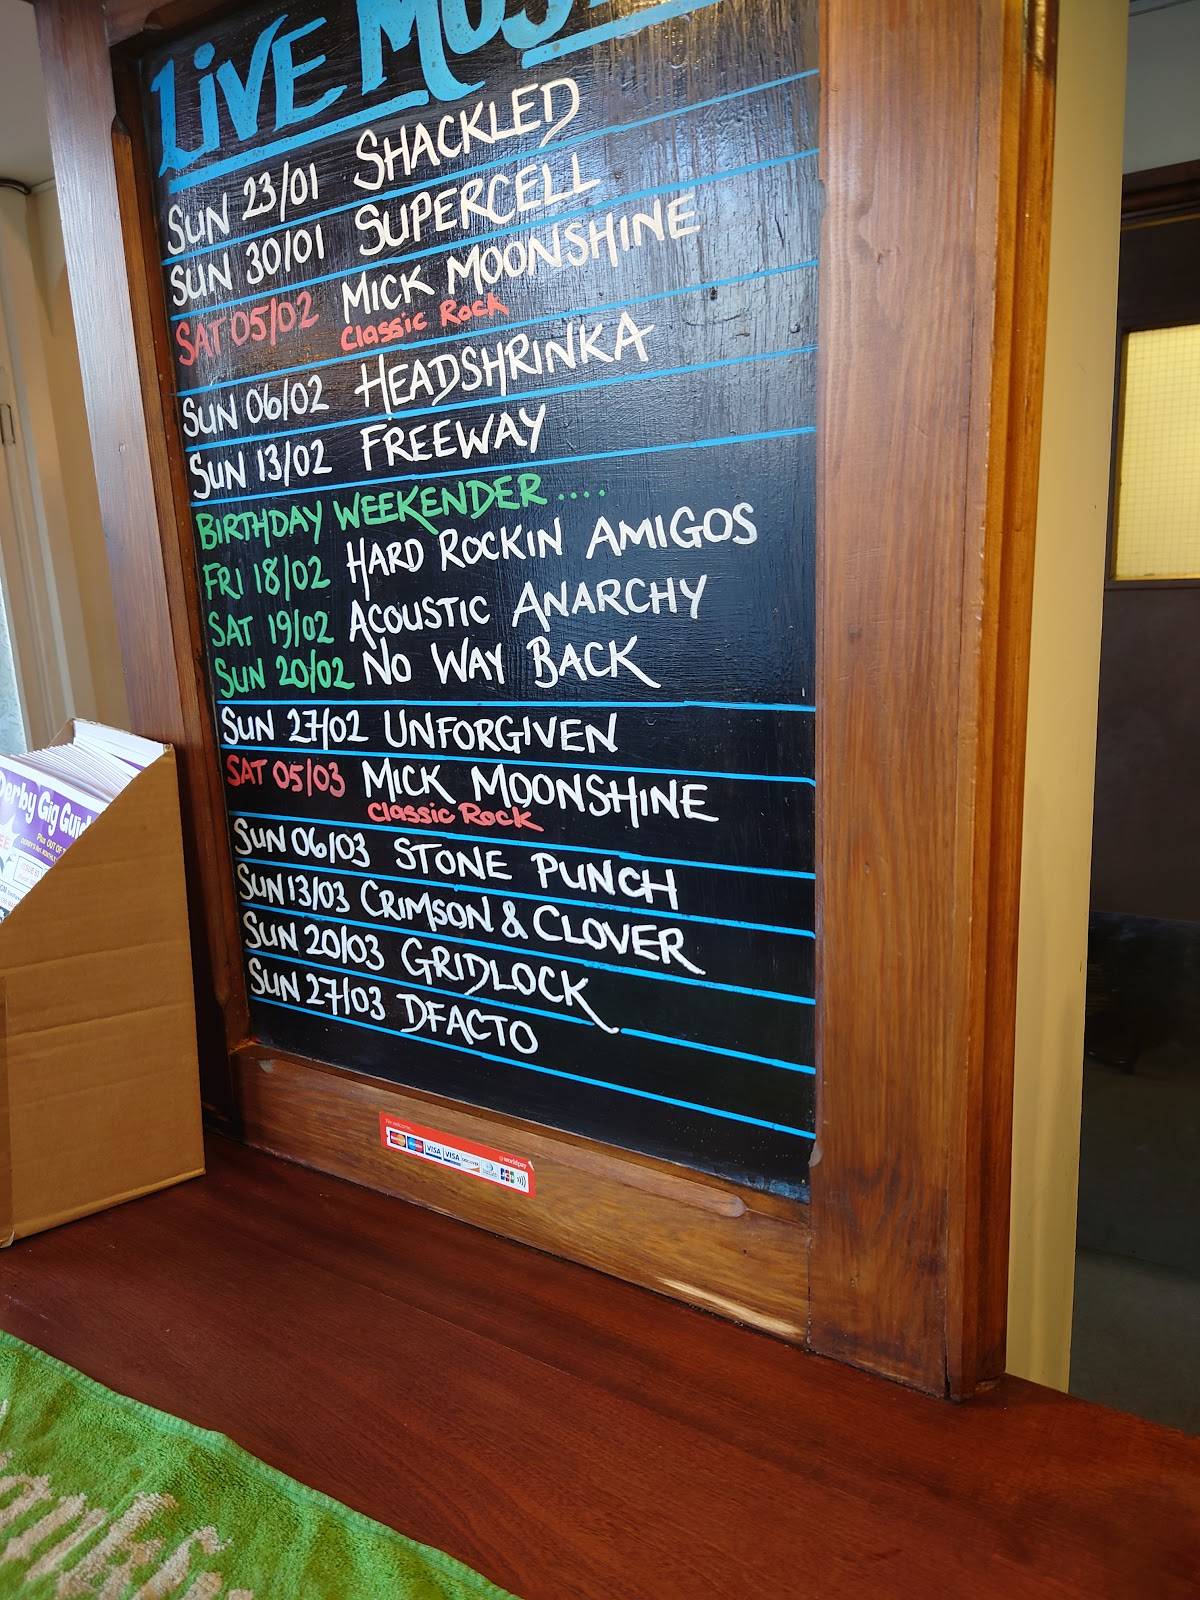 LIVE
SUN 23/01 SHACKLED
SUN 30/01 SUPERCELL
SAT 05/02 MICK MOONSHINE
Classic Rock
SUN 06/02 HEADSHRINKA
SUN 13/02 FREEWAY
BIRTHDAY WEEKENDER ....
FRI 18/02 HARD ROCKIN AMIGOS
SAT 19/02 ACOUSTIC ANARCHY
SUN 20/02 NO WAY BACK
SUN 27/02 UNFORGIVEN
SAT 05/03 MICK MOONSHINE
Classic Rock
SUN 06/03 STONE PUNCH
SUN 13/03 CRIMSON & CLOVER
SUN 20/03 GRIDLOCK
SUN 27/03 DFACTO
Derby Gig
Plus OUT OF
VISA VISA
worldpay